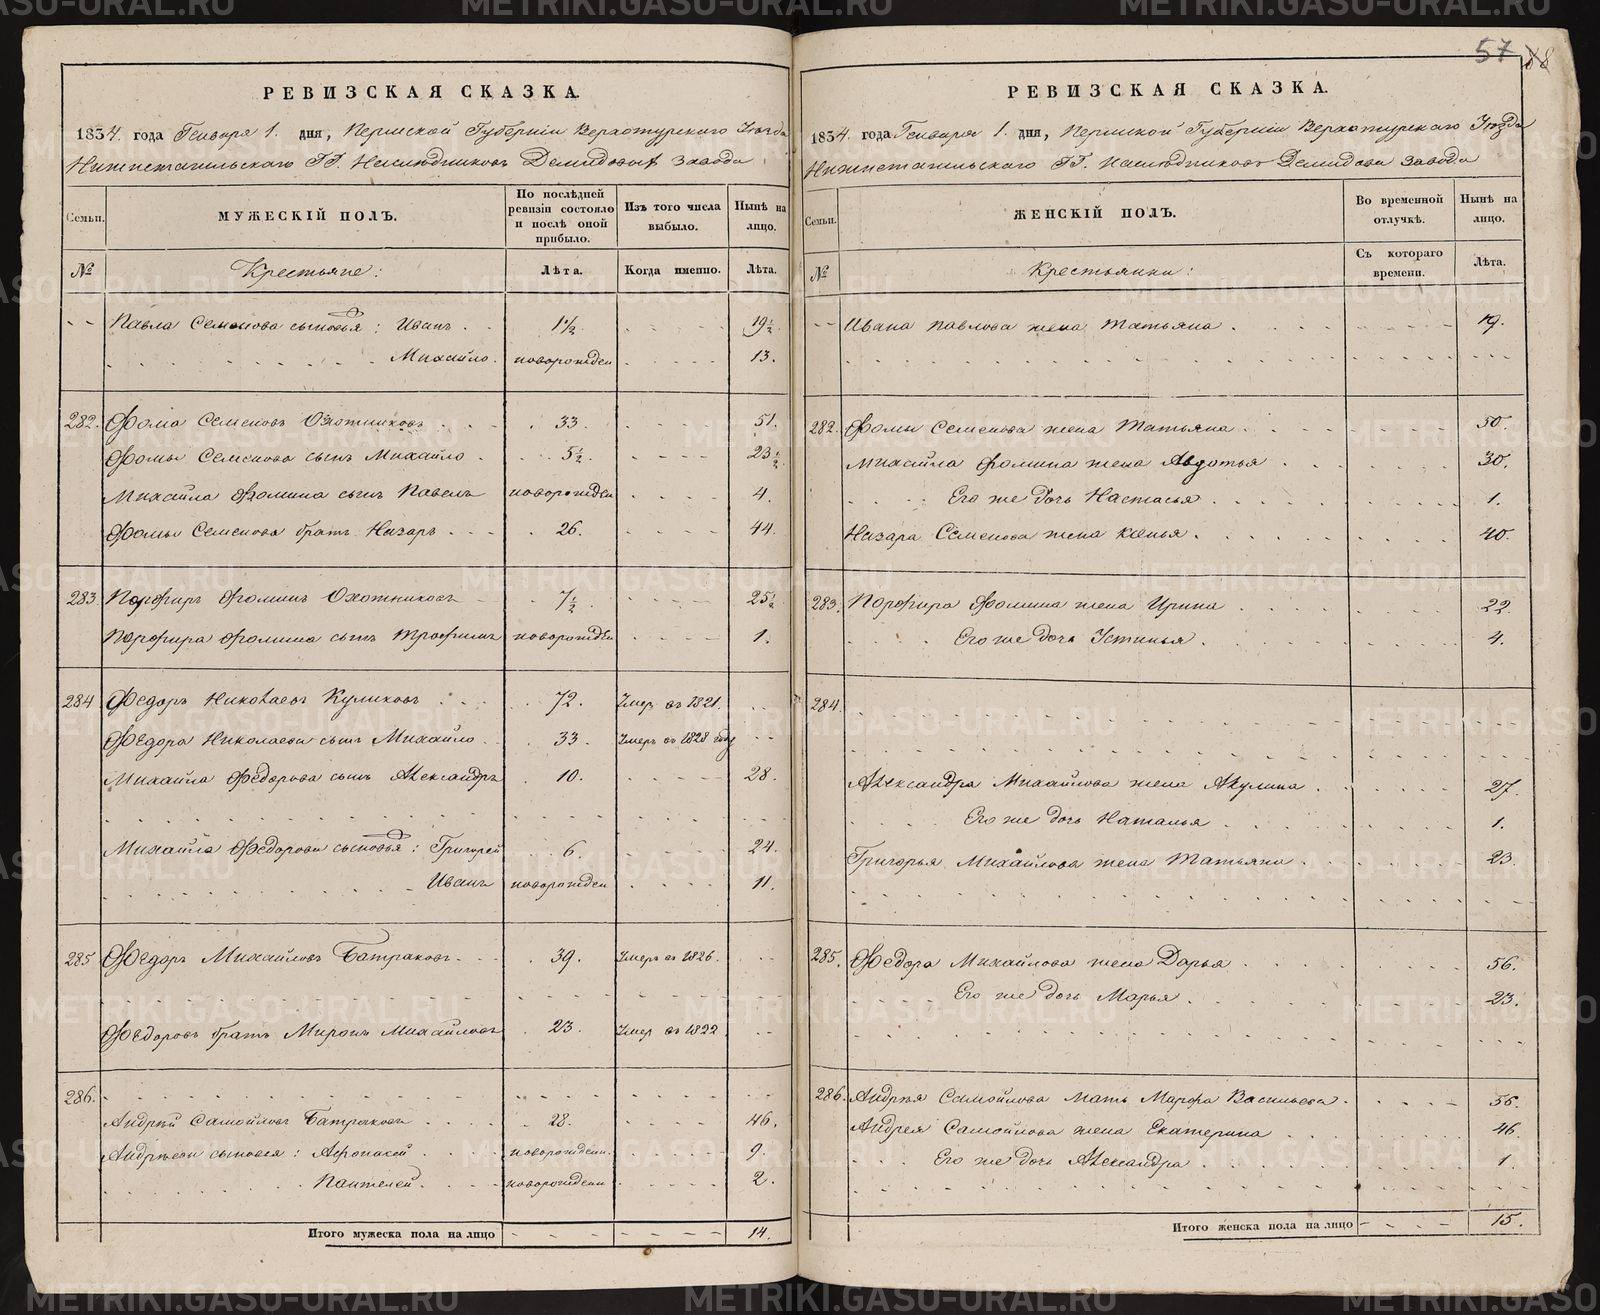 57 88
РЕВИЗСКАЯ СКАЗКА.
1834. года Генваря 1. дня, Пермской Губерніи Верхотурского Уѣзда
Нижнетагильского ГГ. Наслѣдниковъ Демидовых завода
Семьи. МУЖЕСКІЙ ПОЛЪ. По послѣдней ревизіи состояло и послѣ оной прибыло. Изъ того числа выбыло. Нынѣ на лицо.
№ Крестьяне: Лѣта. Когда именно. Лѣта.
Павла Семенова сыновья: Иванъ 1 1/2 19 1/2
Михайло. новорожден 13.
282. Фома Семеновъ Охотниковъ 33. 51.
Фомы Семенова сынъ Михайло 5 1/2 23 1/2
Михайла Фомина сынъ Павелъ новорожден 4.
Фомы Семенова братъ Назаръ 26. 44.
283. Порфиръ Фоминъ Охотниковъ 7 1/2 25 1/2
Порфира Фомина сынъ Трофимъ новорожден 1.
284 Федоръ Николаевъ Куликовъ 72. Умер въ 1821.
Федора Николаева сынъ Михайло 33. Умеръ въ 1828 году
Михайла Федорова сынъ Александръ 10. 28.
Михайла Федорова сыновья: Григорей 6. 24.
Иванъ новорожден 11.
285 Федоръ Михайловъ Батраковъ 39. Умеръ въ 1826.
Федоровъ братъ Миронъ Михайловъ 23. Умер въ 1822
286.
Андрей Самойловъ Батраковъ 28. 46.
Андреевы сыновья: Афонасей новорожден. 9.
Пантелей. новорожден 2.
Итого мужеска пола на лицо 14.
РЕВИЗСКАЯ СКАЗКА.
1834. года Генваря 1. дня, Пермской Губерніи Верхотурского Уѣзда
Нижнетагильского ГГ. Наслѣдниковъ Демидова завода
Семьи. ЖЕНСКІЙ ПОЛЪ. Во временной отлучкѣ. Нынѣ на лицо.
№ Крестьянки: Съ котораго времени. Лѣта.
Ивана Павлова жена Татьяна 19.
282. Фомы Семенова жена Татьяна 50.
Михайла Фомина жена Авдотья 30.
Его же дочь Настасья 1.
Назара Семенова жена Ксенья. 40.
283. Порфира Фомина жена Ирина 22.
Его же дочь Устинья. 4.
284.
Александра Михайлова жена Акулина 27.
Его же дочь Наталья 1.
Григорья Михайлова жена Татьяна 23.
285. Федора Михайлова жена Дарья 56.
Его же дочь Марья 23.
286. Андрея Самойлова мать Марфа Васильева. 56.
Андрея Самойлова жена Екатерина 46
Его же дочь Александра 1.
Итого женска пола на лицо 15.
METRIKI.GASO-URAL.RU